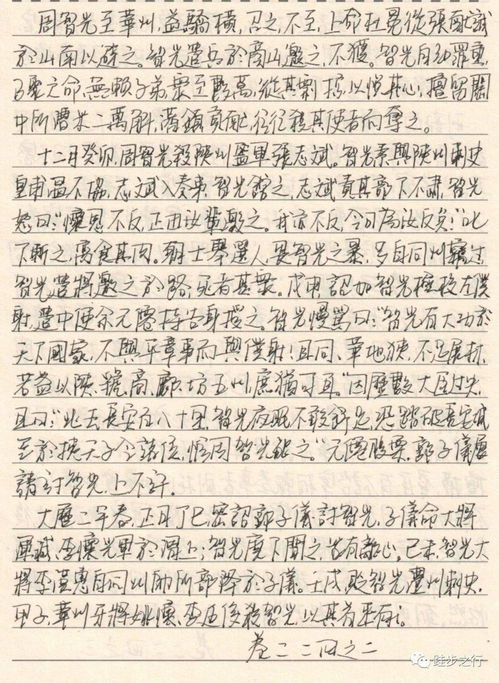 周智光至華州,益驕橫,召之,不至,上命杜冕從張獻誠
於山南以避之。智光遣兵於商山邀之,不獲。智光自知罪重,
乃聚亡命、無賴子弟,眾至數萬,縱其剽掠,以悅其心,擅留關
中所漕米二萬斛,藩鎮貢獻,往往殺其使者而奪之。
十二月癸卯,周智光殺陝州監軍張志斌。智光素與陝州刺史
皇甫溫不協,志斌入奏事,智光館之,志斌責其部下不肅,智光
怒曰:“僕固懷恩不反,正由汝輩激之。我亦不反,今日為汝反矣!”叱
下斬之,臠食其肉。朝士舉選人畏智光之暴,多自同州竊過,
智光遣將邀之於路,死者甚眾。戊申,詔加智光檢校左僕
射,遣中使余元僊持告身授之。智光慢罵曰:“智光有大功於
天下國家,不與平章事而與僕射!且同、華地狹,不足展材,
若益以陝、虢、商、鄜、坊五州,庶猶可耳。”因歷數大臣過失,
且曰:“此去長安百八十里,智光夜眠不敢舒足,恐踏破長安城,
至於挾天子令諸侯,惟周智光能之。”元僊股栗。郭子儀屢
請討智光,上不許。
大曆二年春,正月丁巳,密詔郭子儀討智光,子儀命大將
渾瑊、李懷光軍於渭上;智光麾下聞之,皆有離心。己未,智光大
將李漢惠自同州帥所部降於子儀。壬戌,貶智光澧州刺史。
甲子,華州牙將姚懷、李延俊殺智光,以其首來獻。
卷二二四之二
跬步之行